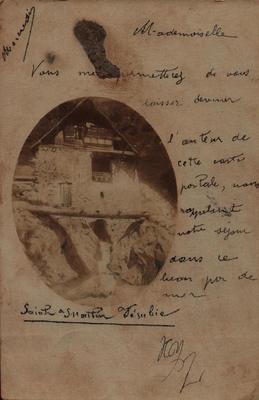 Mercredi
Mademoiselle
Vous me permettrez de vous
laisser deviner
l'auteur de
cette carte
postale, vous
rappelant
votre séjour
dans ce
beau
mer
Saint-Martin Vésubie